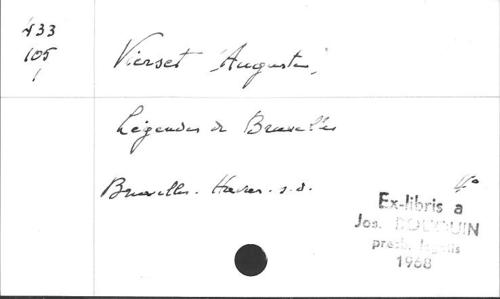 433
105
1
Vierset (Auguste)
Légendes de Bruxelles
Bruxelles. Havas. s.d.
4°
Ex-libris a
Jos.
presb.
1968